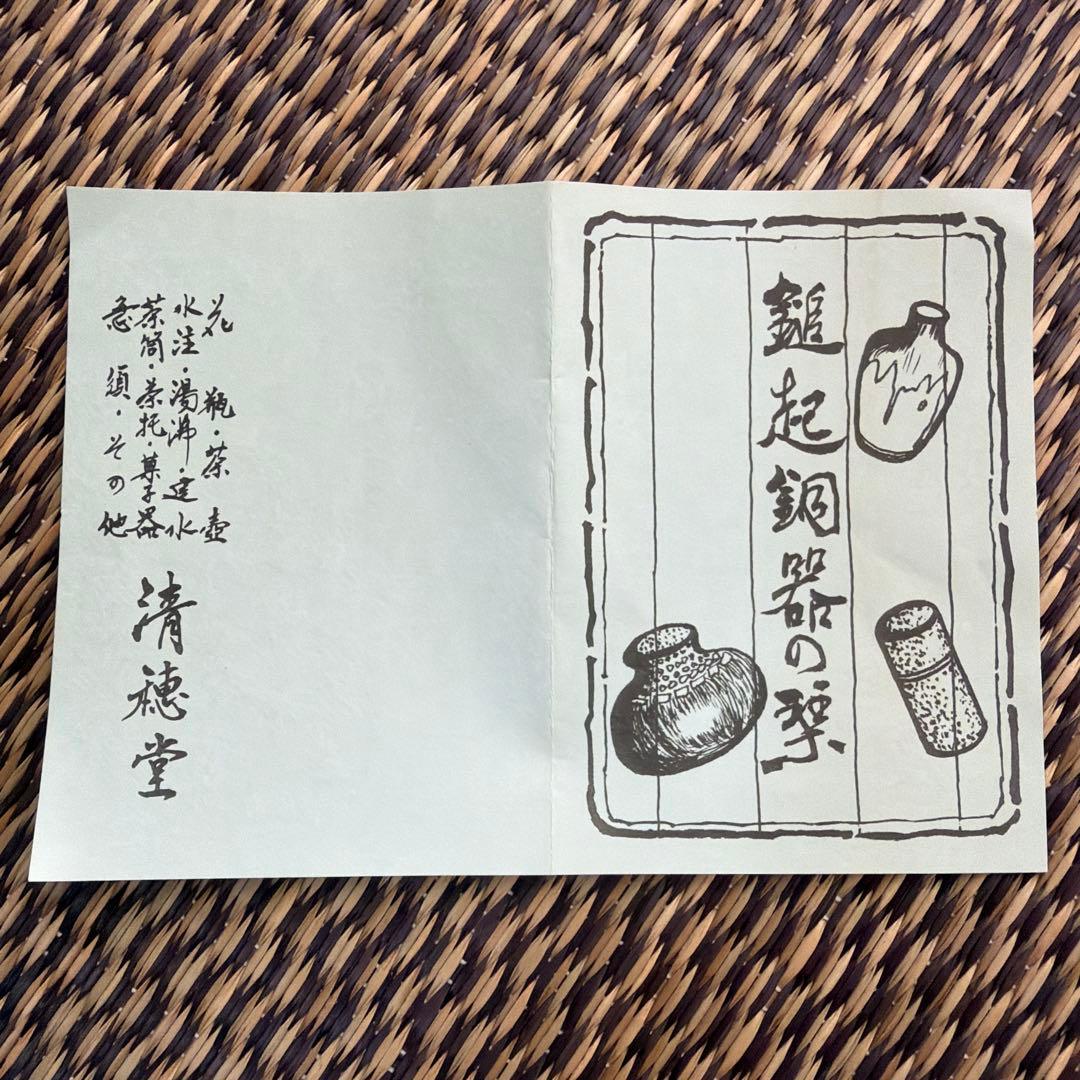 鎚起銅器の栞
花瓶・茶壺
水注・湯沸・建水
茶筒・茶托・菓子器
急須・その他
清穂堂